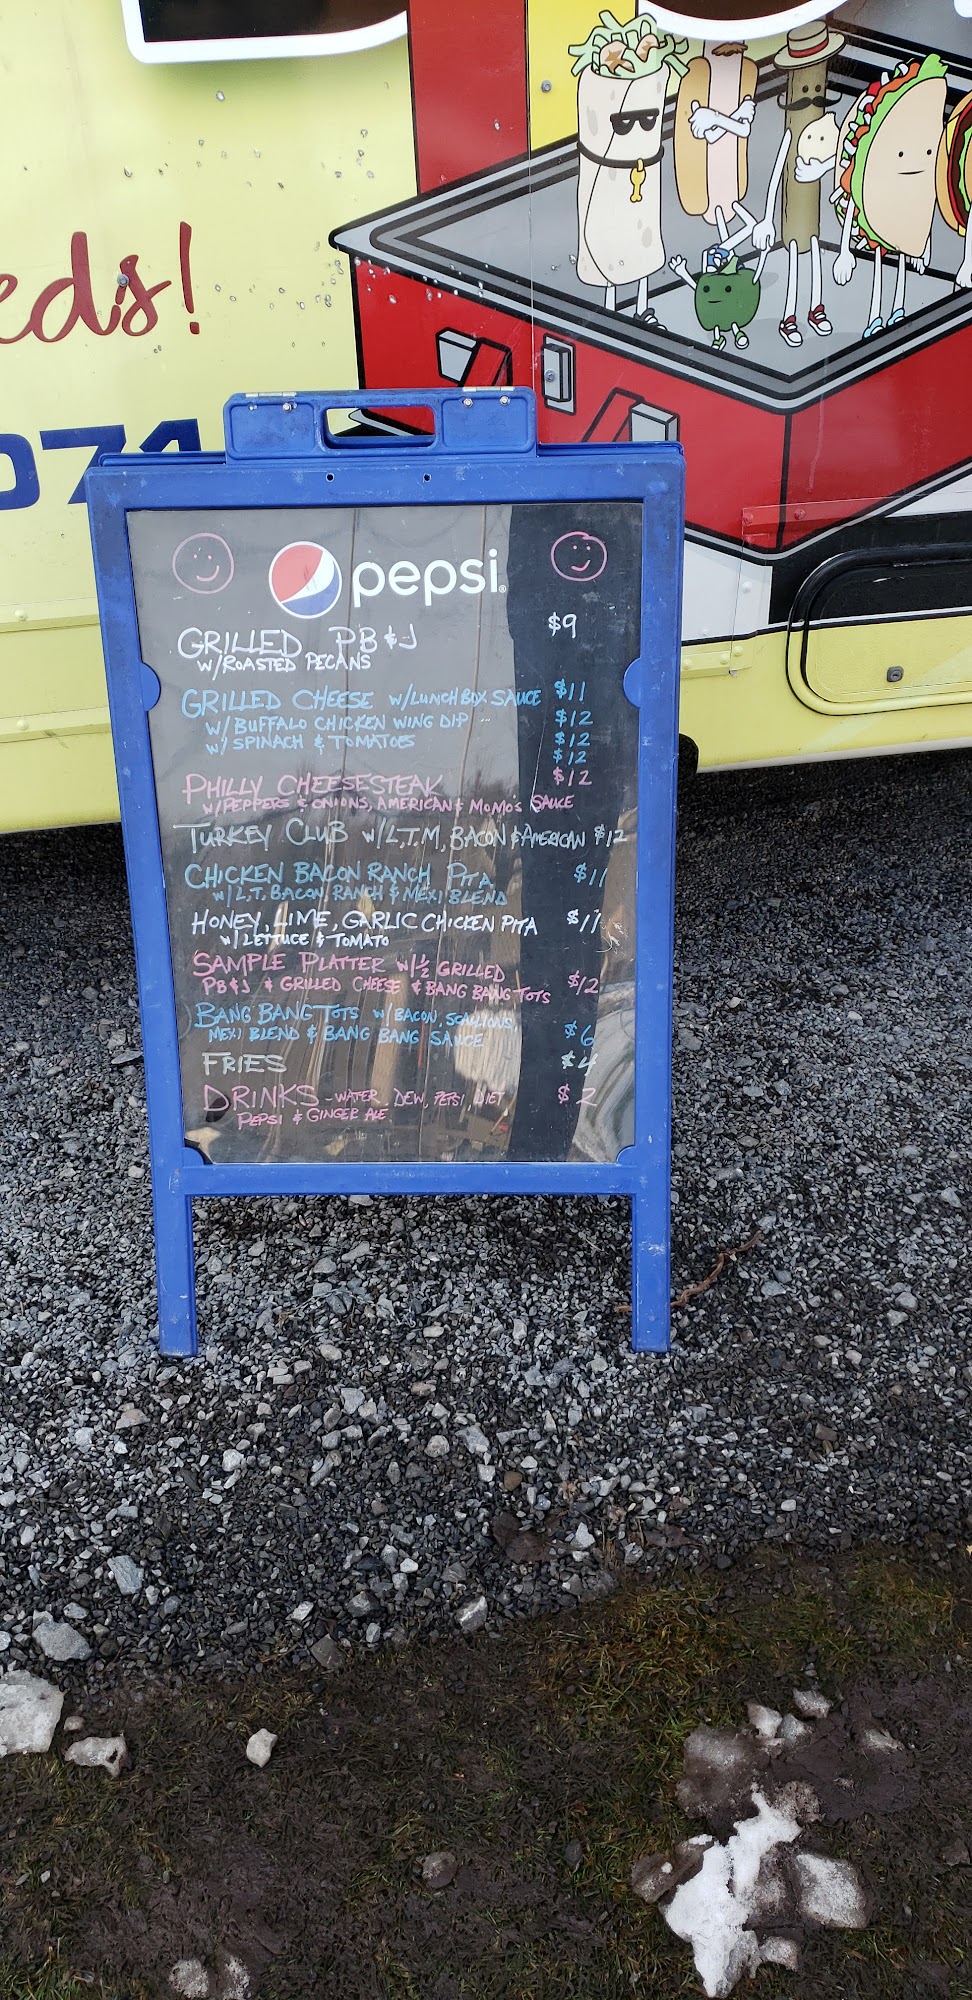 eds!
071
pepsi
GRILLED PB & J $9
W/ROASTED PECANS
GRILLED CHEESE W/LUNCH BOX SAUCE $11
W/ BUFFALO CHICKEN WING DIP $12
W/ SPINACH & TOMATOES $12
$12
PHILLY CHEESESTEAK $12
W/PEPPERS & ONIONS, AMERICAN & MOMO'S SAUCE
TURKEY CLUB W/L,T,M, BACON & AMERICAN $12
CHICKEN BACON RANCH PITA $11
W/L,T, BACON, RANCH & MEXI BLEND
HONEY, LIME, GARLIC CHICKEN PITA $11
W/ LETTUCE & TOMATO
SAMPLE PLATTER W/ ½ GRILLED
PB&J & GRILLED CHEESE & BANG BANG TOTS $12
BANG BANG TOTS W/ BACON, SCALLIONS,
MEXI BLEND & BANG BANG SAUCE $6
FRIES $4
DRINKS - WATER, DEW, PEPSI, DIET $2
PEPSI & GINGER ALE